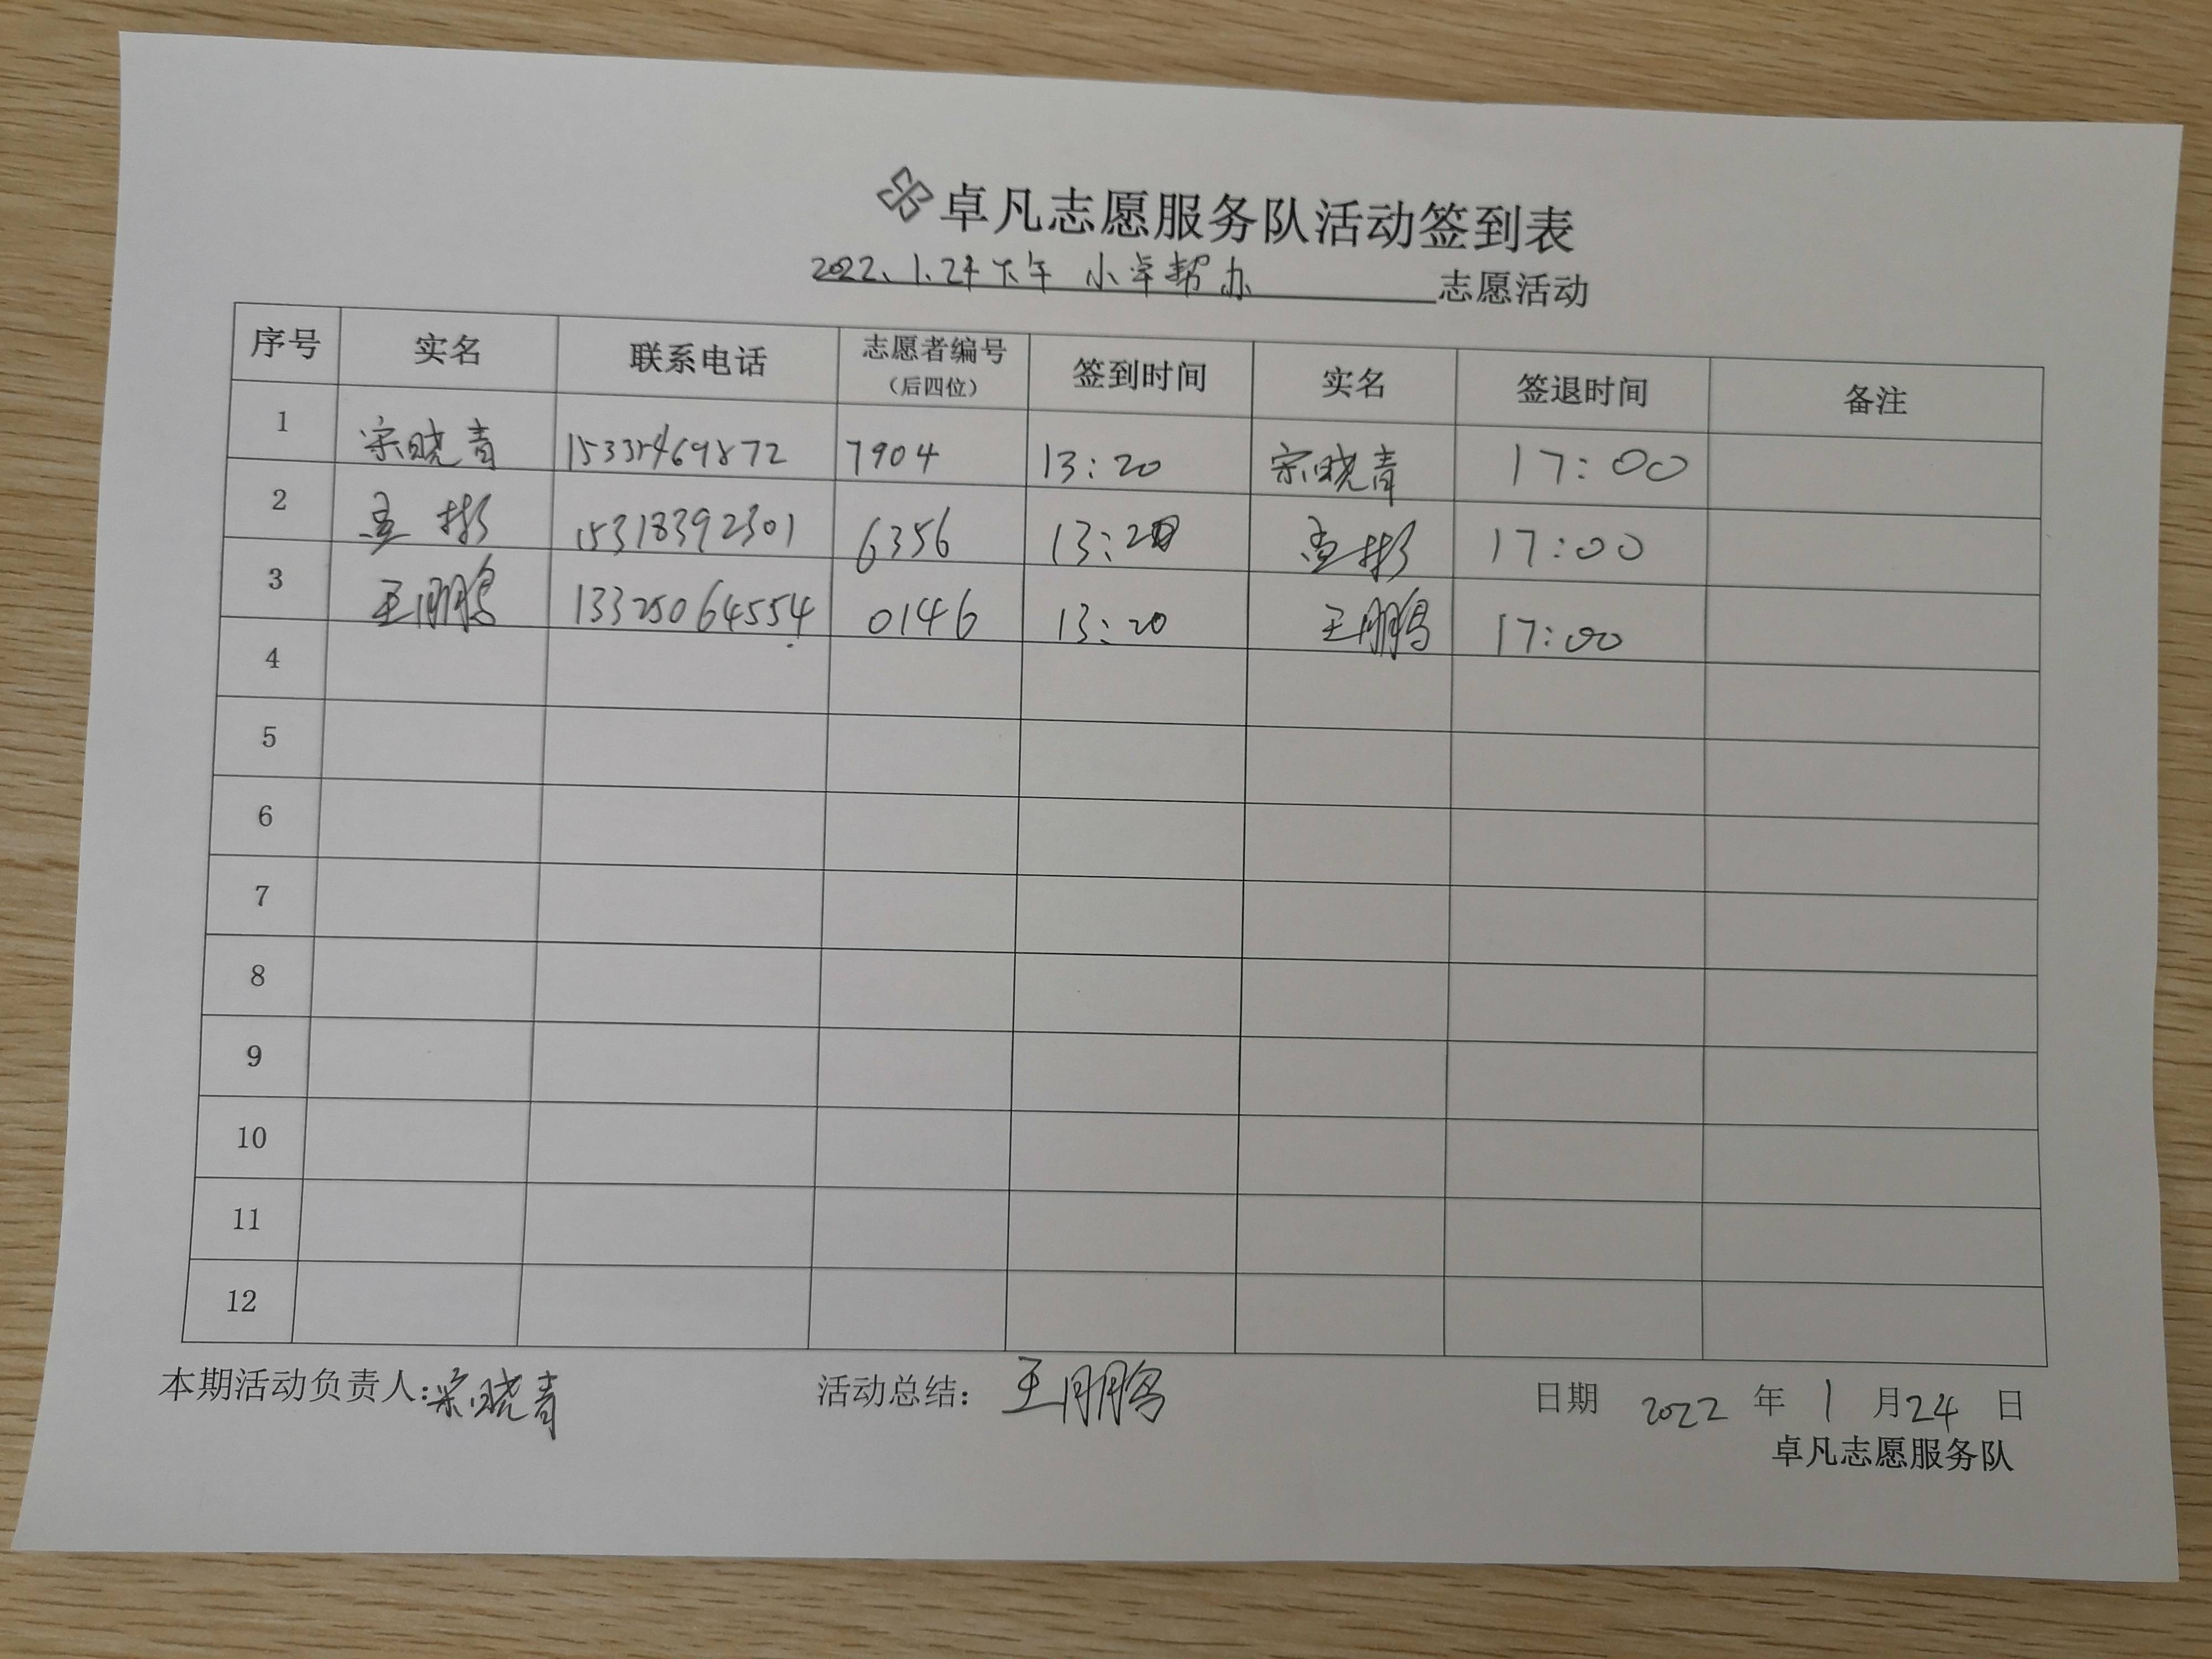 卓凡志愿服务队活动签到表
2022.1.24下午 小卓帮办 志愿活动
序号 实名 联系电话 志愿者编号（后四位） 签到时间 实名 签退时间 备注
1 宋晓青 15335469872 7904 13:20 宋晓青 17:00
2 孟彬 15318392301 6356 13:20 孟彬 17:00
3 王鹏 13325064554 0146 13:20 王鹏 17:00
4
5
6
7
8
9
10
11
12
本期活动负责人：宋晓青 活动总结：王鹏 日期 2022 年 1 月 24 日
卓凡志愿服务队